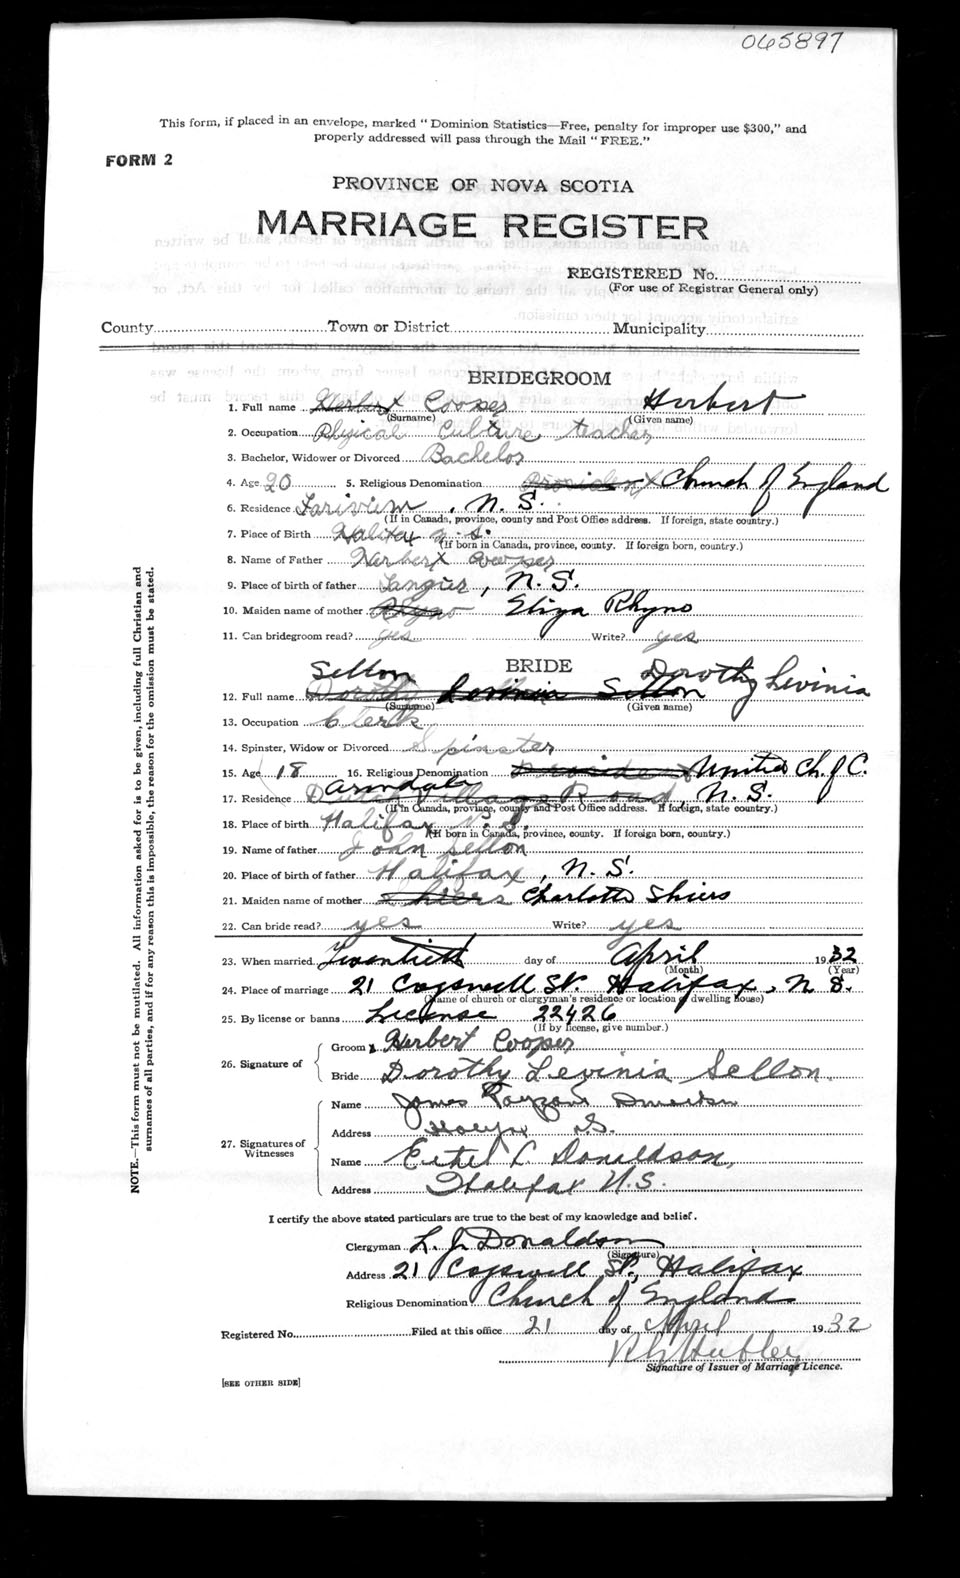 065897
This form, if placed in an envelope, marked "Dominion Statistics—Free, penalty for improper use $300," and
properly addressed will pass through the Mail "FREE."
FORM 2
PROVINCE OF NOVA SCOTIA
MARRIAGE REGISTER
REGISTERED No.
(For use of Registrar General only)
County Town or District Municipality
BRIDEGROOM
1. Full name Herbert Cooper Herbert
(Surname) (Given name)
2. Occupation Physical Culture teacher
3. Bachelor, Widower or Divorced Bachelor
4. Age 20 5. Religious Denomination Church of England
6. Residence , N.S.
(If in Canada, province, county and Post Office address. If foreign, state country.)
7. Place of Birth Halifax N.S.
(If born in Canada, province, county. If foreign born, country.)
8. Name of Father Herbert Cooper
9. Place of birth of father Tangier, N.S.
10. Maiden name of mother Rhyno Eliza Rhyno
11. Can bridegroom read? yes Write? yes
BRIDE
Sellon Dorothy Levinia
12. Full name Dorothy Levinia Sellon
(Surname) (Given name)
13. Occupation Clerk
14. Spinster, Widow or Divorced Spinster
15. Age 18 16. Religious Denomination United Ch. of C.
Armdale
17. Residence Dutch Village Road, N.S.
(If in Canada, province, county and Post Office address. If foreign, state country.)
18. Place of birth Halifax N.S.
(If born in Canada, province, county. If foreign born, country.)
19. Name of father John Sellon
20. Place of birth of father Halifax, N.S.
21. Maiden name of mother Shiers Charlotte Shiers
22. Can bride read? yes Write? yes
23. When married Twentieth day of April 1932
(Month) (Year)
24. Place of marriage 21 Cogswell St. Halifax, N.S.
(Name of church or clergyman's residence or location of dwelling house)
25. By license or banns License 22426
(If by license, give number.)
26. Signature of
Groom x Herbert Cooper
Bride Dorothy Levinia Sellon.
27. Signatures of Witnesses
Name James
Address N.S.
Name Ethel L. Donaldson,
Address Halifax N.S.
I certify the above stated particulars are true to the best of my knowledge and belief.
Clergyman L. J. Donaldson
(Signature)
Address 21 Cogswell St, Halifax
Religious Denomination Church of England
Registered No. Filed at this office 21 day of April 1932
Signature of Issuer of Marriage Licence.
[SEE OTHER SIDE]
NOTE.—This form must not be mutilated. All information asked for is to be given, including full Christian and
surnames of all parties, and if for any reason this is impossible, the reason for the omission must be stated.